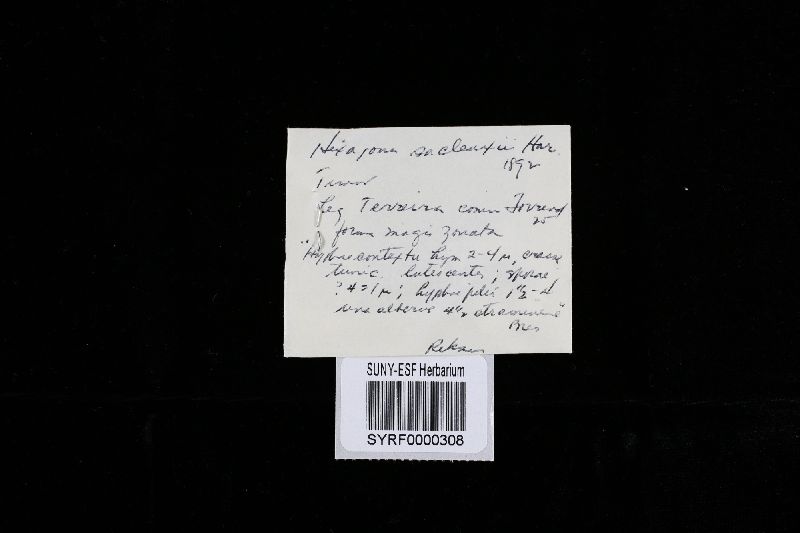 Hexagona sacleuxii Har.
1892
Timor
Leg Terreira comm Torrend
25
forma magis zonata
"Hyphae contextu hym 2-4 µ, crasse
tunic. lutescentes; sporae
? 4 = 1 µ; hyphae pilei 1 1/2 - 4
una altera 4 1/2
Bres
SUNY-ESF Herbarium
SYRF0000308